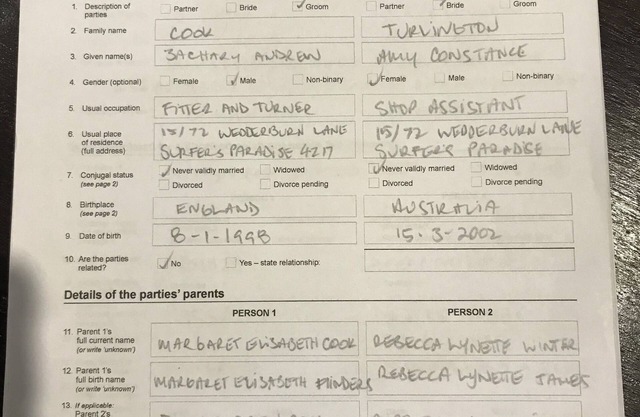 1. Description of parties Partner Bride ✓ Groom Partner ✓ Bride Groom
2. Family name COOK TURLINGTON
3. Given name(s) ZACHARY ANDREW AMY CONSTANCE
4. Gender (optional) Female ✓ Male Non-binary ✓ Female Male Non-binary
5. Usual occupation FITTER AND TURNER SHOP ASSISTANT
6. Usual place of residence (full address) 15/72 WEDDERBURN LANE 15/72 WEDDERBURN LANE
SURFER'S PARADISE 4217 SURFER'S PARADISE
7. Conjugal status (see page 2) ✓ Never validly married Widowed ✓ Never validly married Widowed
Divorced Divorce pending Divorced Divorce pending
8. Birthplace (see page 2) ENGLAND AUSTRALIA
9. Date of birth 8-1-1998 15.3-2002
10. Are the parties related? ✓ No Yes – state relationship:
Details of the parties' parents
PERSON 1 PERSON 2
11. Parent 1's full current name (or write 'unknown') MARGARET ELISABETH COOK REBECCA LYNETTE WINTER
12. Parent 1's full birth name (or write 'unknown') MARGARET ELISABETH FLINDERS REBECCA LYNETTE JAMES
13. If applicable:
Parent 2's